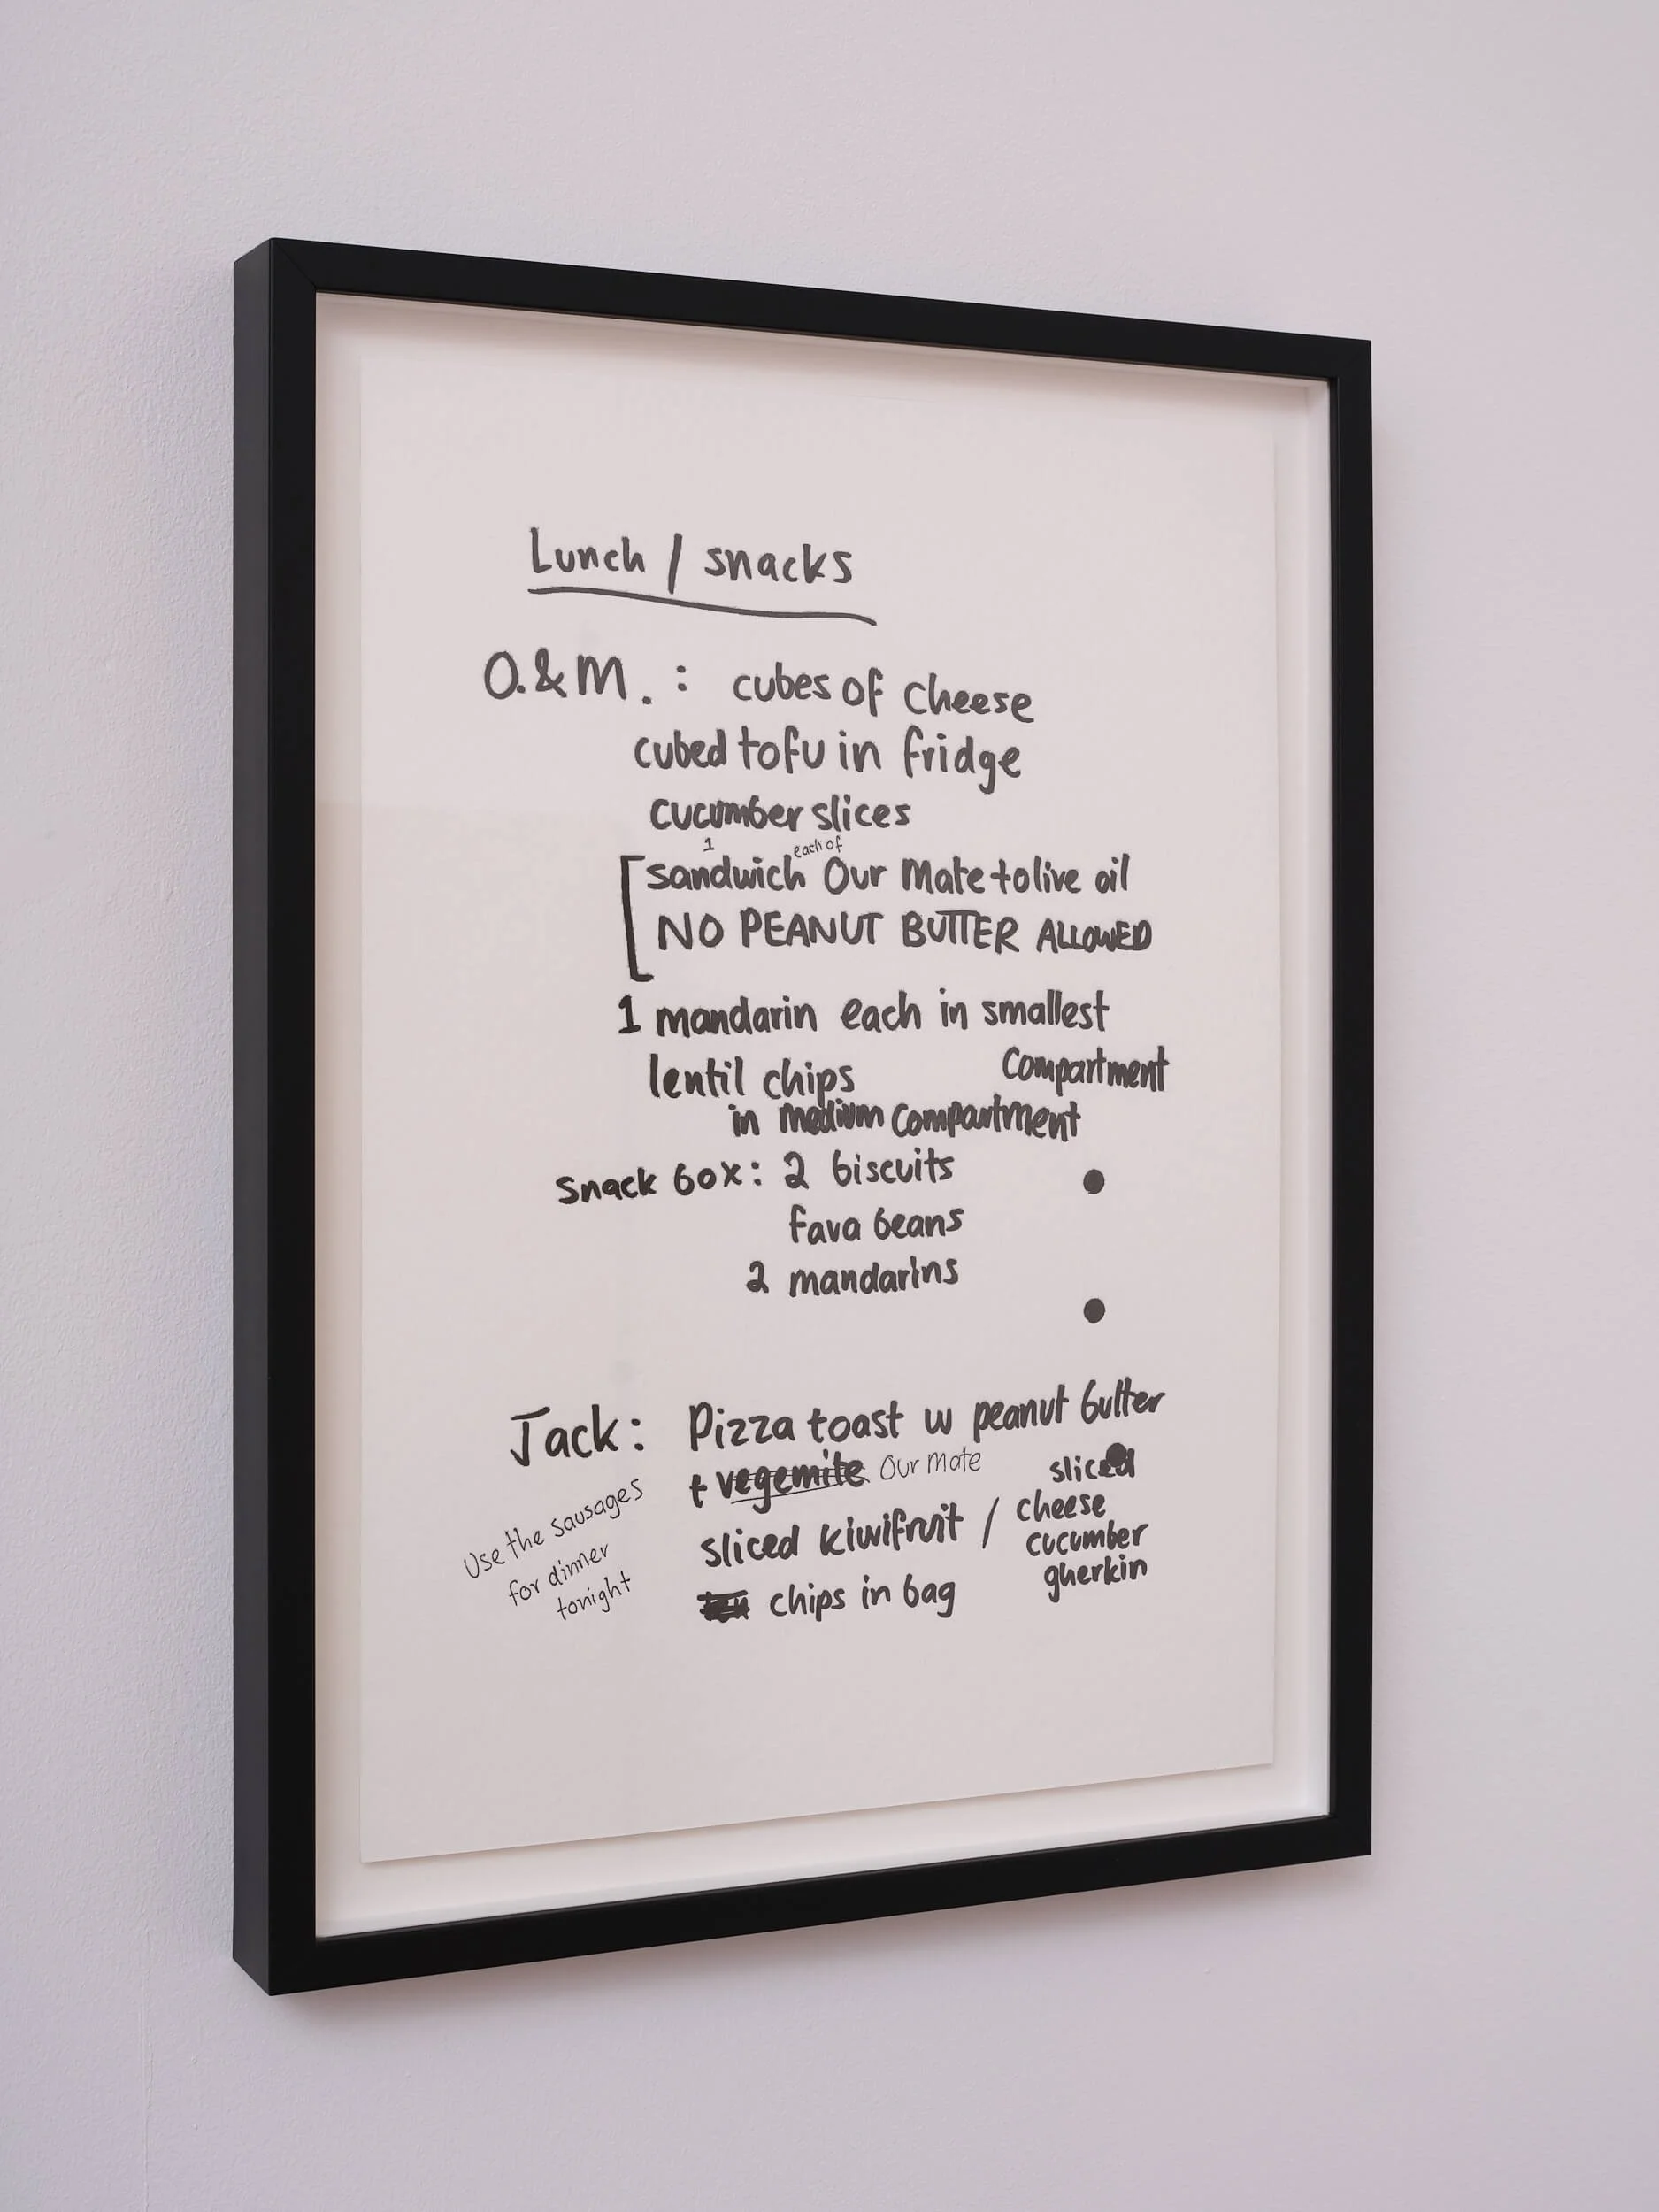 Lunch / snacks
O.&M. : cubes of cheese
cubed tofu in fridge
cucumber slices
1 each of
sandwich Our Mate + olive oil
NO PEANUT BUTTER ALLOWED
1 mandarin each in smallest
compartment
lentil chips
in medium compartment
Snack box: 2 biscuits
fava beans
2 mandarins
Jack: Pizza toast w peanut butter
+ vegemite Our Mate
sliced kiwifruit / sliced
cheese
cucumber
gherkin
chips in bag
Use the sausages
for dinner
tonight